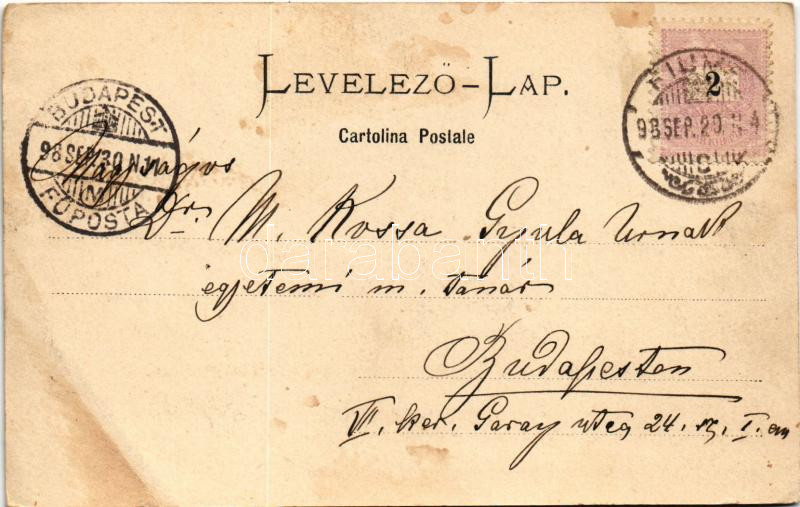 LEVELEZŐ-LAP.
Cartolina Postale
2
FIUME
98 SEP. 29. N. 4
BUDAPEST
98 SEP. 30. N. 11
FŐPOSTA
Nagyságos
Dr. M. Kossa Gyula Urnak
egyetemi m. tanár
Budapesten
VII. ker. Garay utca 24. sz. I. em
darabanth